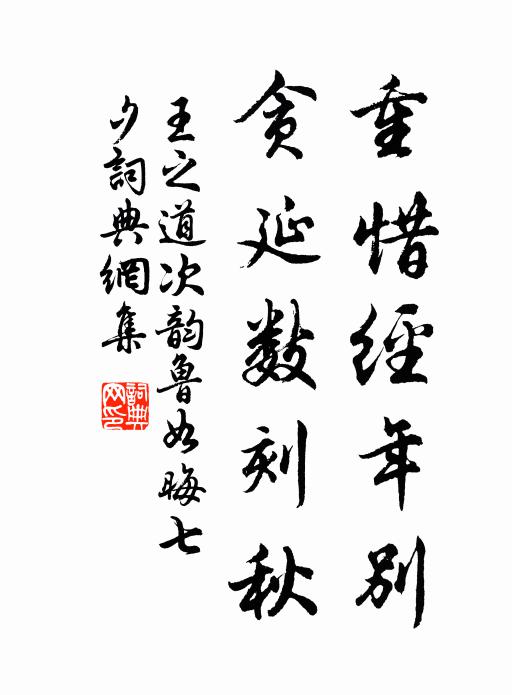 重惜經年别
貪延数刻秋
王之道次韵魯如晦七
夕詞典網集
詞典
网印